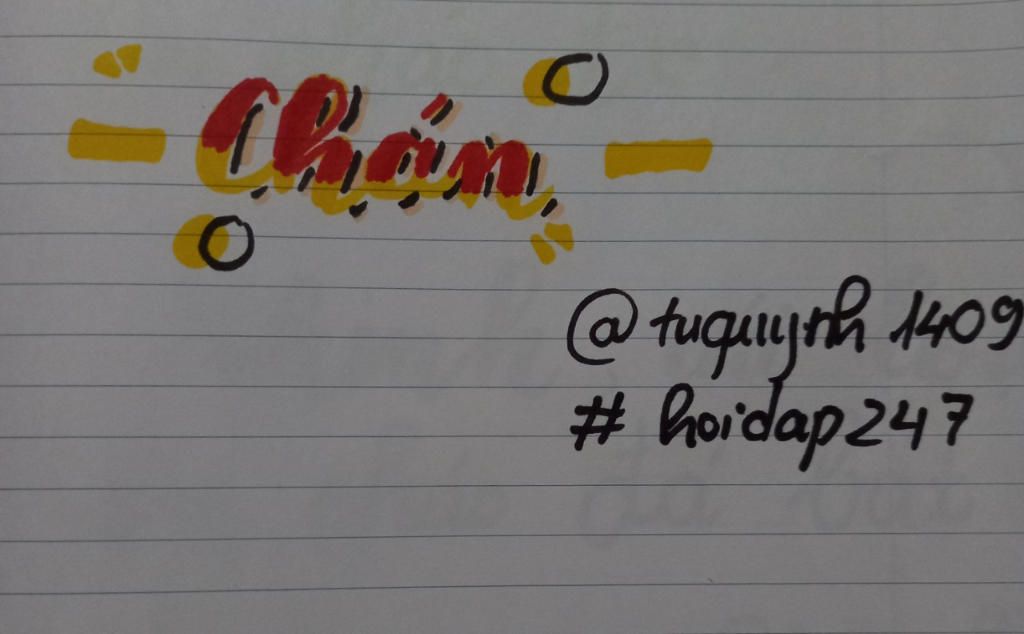 Chán
@tuquynh1409
#hoidap247